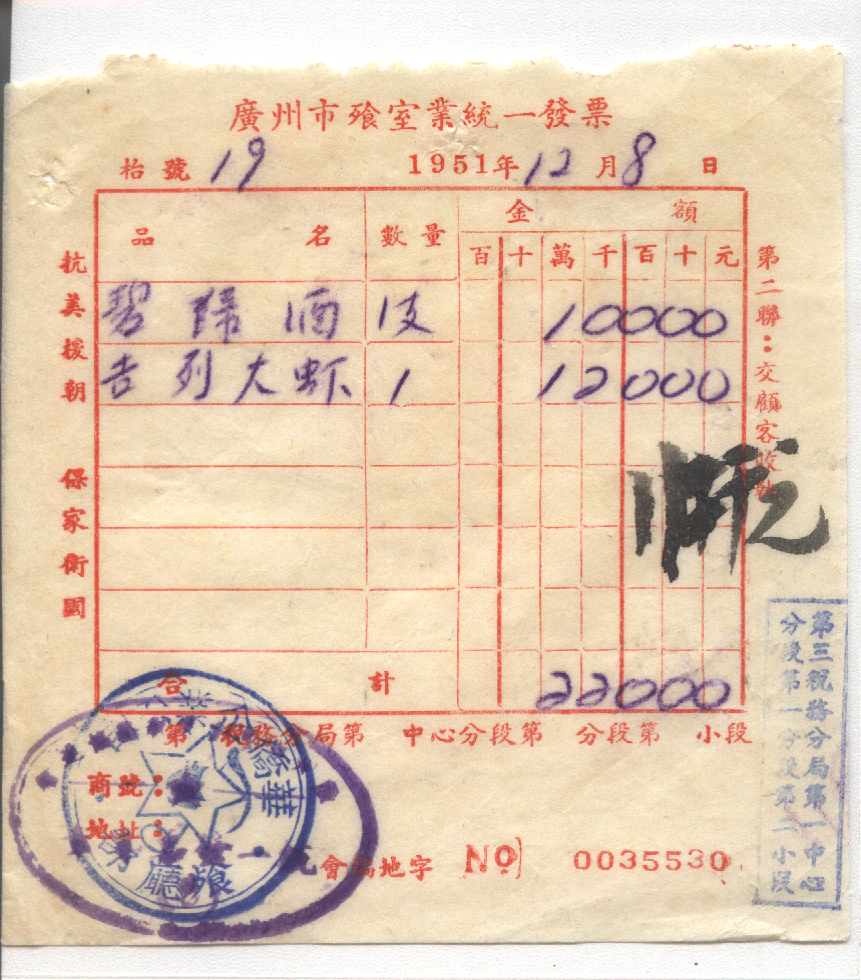 廣州市飱室業統一發票
枱號 19 1951年12月8日
品名 數量 金額
百 十 萬 千 百 十 元
酒 1支 10000
吉列大虾 1 12000
合計 22000
抗美援朝 保家衛國
第二聯：交顧客收執
第 稅務分局第 中心分段第 分段第 小段
商號：
地址：
華僑
飱廳
會 地字 NO 0035530
第三稅務分局第一中心
分段第一分段第二小段